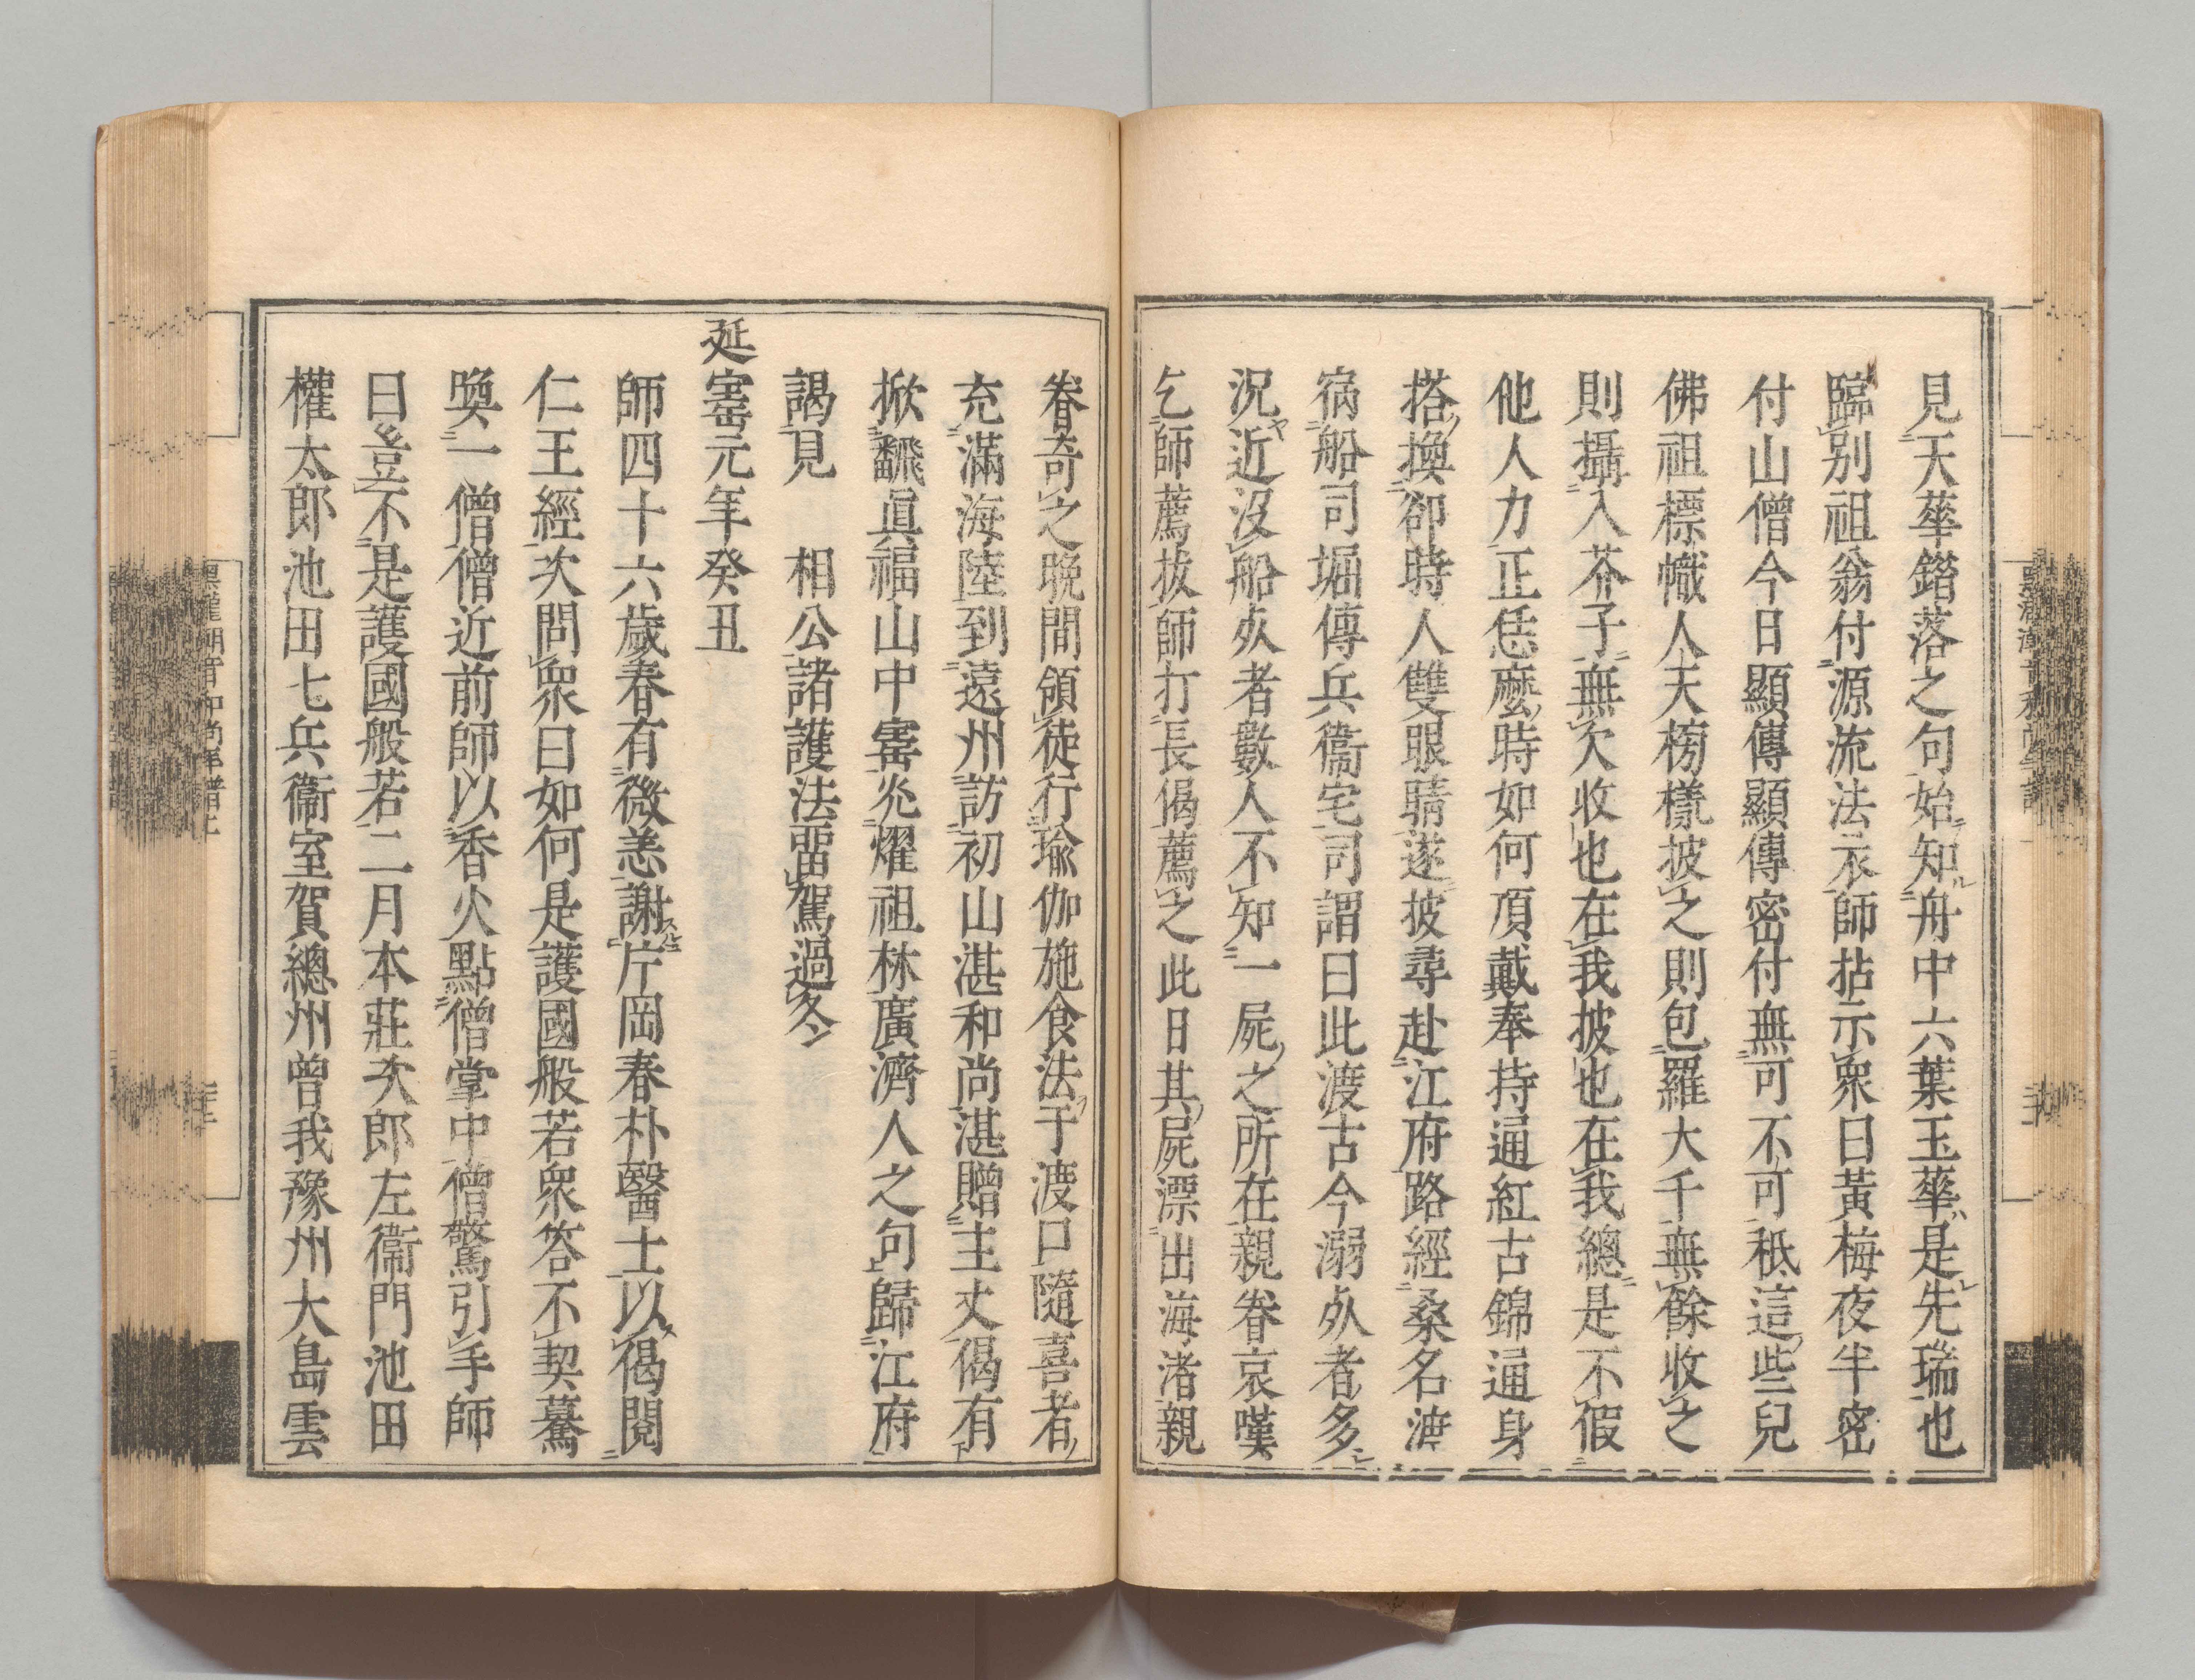 見天華鐕落之句始知舟中六葉玉華是先瑞也
臨別祖翁付源流法衣師拈示衆曰黃梅夜半密
付山僧今日顯傳顯傳密付無可不可秪這些兒
佛祖標幟人天榜樣披之則包羅大千無餘收之
則攝入芥子無欠收也在我披也在我總是不假
他人力正恁麼時如何頂戴奉持通紅古錦通身
搭換卻時人雙眼睛遂披尋赴江府路經桑名渡
宿船司堀傳兵衞宅司謂曰此渡古今溺死者多
況近沒船死者數人不知一屍之所在親眷哀嘆
乞師薦拔師打長偈薦之此日其屍漂出海渚親
眷奇之晚間領徒行瑜伽施食法于渡口隨喜者
充滿海陸到遠州訪初山湛和尚湛贈主丈偈有
掀飜眞福山中窰兆燿祖林廣濟人之句歸江府
謁見　相公諸護法畱駕過冬
延寶元年癸丑
師四十六歲春有微恙謝片岡春朴醫士以偈閱
仁王經次問衆曰如何是護國般若衆答不契驀
喚一僧僧近前師以香火點僧掌中僧驚引手師
曰豈不是護國般若二月本莊次郎左衞門池田
權太郎池田七兵衞室賀總州曾我豫州大島雲